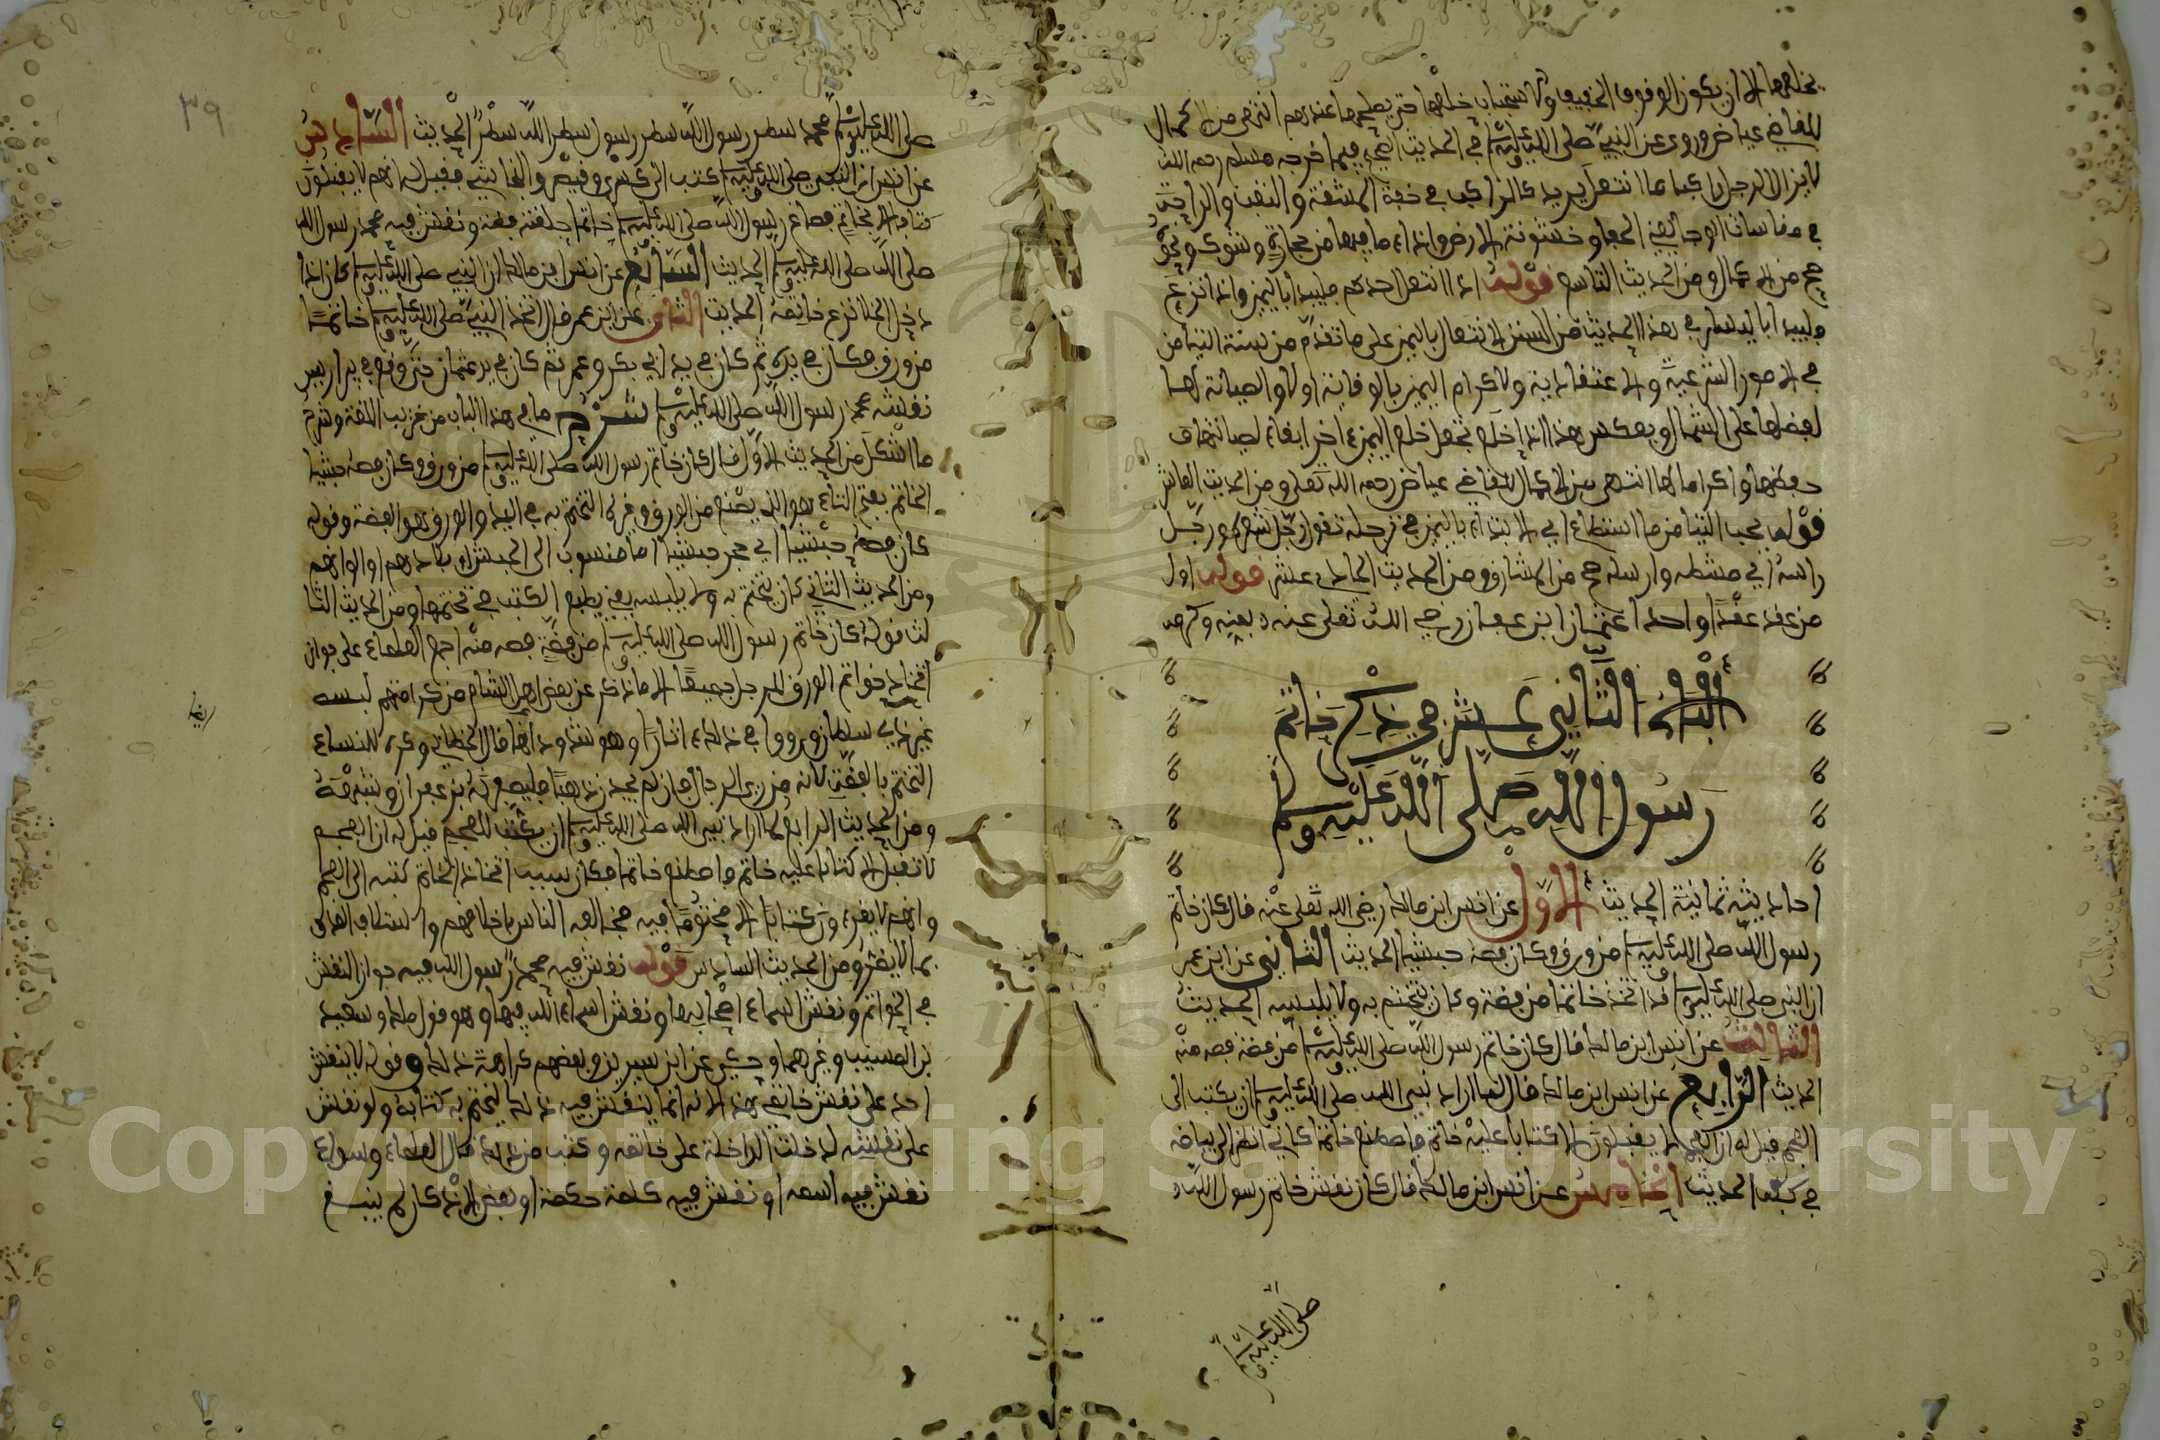 يخلعهما الا ان يكون الوقوف الخفيف ولا تشتبان خلعهما حتى يصلحهما عندهم انتهى من الاكمال
للقاضي عياض وروى عن النبي صلى الله عليه وسلم في الحديث الصحيح فيما خرجه مسلم رحمه الله
لا يزال الرجل راكبا ما انتعل يريد كالراكب في خفة المشقة والتعب والراحة
في مقاسات الوجا يعني الحفا وخشونة الارض واذاء ما فيها من حجارة وشوك ونحو
صح من الاكمال ومن الحديث التاسع قوله اذا انتعل احدكم فليبدا باليمين واذا نزع
فليبدا باليسار في هذا الحديث من السنن الانتعال باليمين على ما تقدم من سنة التيامن
في الامور الشرعية والاعتقادية ولاكرام اليمين بالوقاية اولا والصيانة لها
لفضلها على الشمال وبعكس هذا اذا خلع تجعل خلع اليمين اخرا بقاء لصيانتها
وحفظها واكراما لها انتهى من الاكمال للقاضي عياض رحمه الله تعلى ومن الحديث العاشر
قوله يحب التيامن ما استطاع اي الابتداء باليمين في ترجله تقول رجل شعره ورجل
راسه اي مشطه وارسله صح من المشارق ومن الحديث الحادي عشر قوله اول
من عقد عقدا واحدا عثمان ابن عفان رضي الله تعلى عنه
الباب الثاني عشر في ذكر خاتم
رسول الله صلى الله عليه وسلم
احاديثه ثمانية الحديث الاول عن انس ابن مالك رضي الله تعلى عنه قال كان خاتم
رسول الله صلى الله عليه وسلم من ورق وكان فصه حبشيا الحديث الثاني عن ابن عمر
ان النبي صلى الله عليه وسلم قد اتخذ خاتما من فضة وكان يتختم به ولا يلبسه الحديث
الثالث عن انس ابن مالك قال كان خاتم رسول الله صلى الله عليه وسلم من فضة فصه منه
الحديث الرابع عن انس ابن مالك قال لما اراد نبي الله صلى الله عليه وسلم ان يكتب الى
العجم قيل له ان العجم لا يقبلون الا كتابا عليه خاتم فاصطنع خاتما كاني انظر الى بياضه
في كفه الحديث الخامس عن انس ابن مالك قال كان نقش خاتم رسول الله
صلى الله عليه وسلم
٣٩
صلى الله عليه وسلم محمد سطر رسول الله سطر رسول سطر الله سطر الحديث السادس
عن انس ان النبي صلى الله عليه وسلم كتب الى كسرى وقيصر والنجاشي فقيل له انهم لا يقبلون
كتابا الا بخاتم فصاغ رسول الله صلى الله عليه وسلم خاتما حلقته فضة ونقش فيه محمد رسول الله
صلى الله صلى الله عليه وسلم الحديث السابع عن انس ابن مالك ان النبي صلى الله عليه وسلم كان اذا
دخل الخلا نزع خاتمه الحديث الثامن عن ابن عمر قال اتخذ النبي صلى الله عليه وسلم خاتما
من ورق فكان في يده ثم كان في يد ابي بكر وعمر ثم كان في يد عثمان حتى وقع في بير اريس
نقشه محمد رسول الله صلى الله عليه وسلم شرح ما في هذا الباب من غريب اللغة وشرح
ما اشكل من الحديث الاول قال كان خاتم رسول الله صلى الله عليه وسلم من ورق وكان فصه حبشيا
الخاتم بفتح التاء هو الذي يصنع من الورق وغيره التختم به في اليد والورق هو الفضة وقوله
كان فصه حبشيا اي حجر حبشيا اما منسوب الى الحبش او بلادهم او الوانهم
ومن الحديث الثاني كان يتختم به ولا يلبسه يعني يطبع الكتب في ختمها ومن الحديث الثا
لث قوله كان خاتم رسول الله صلى الله عليه وسلم من فضة فصه منه اجمع العلماء على جواز
اتخاذ خواتم الورق للرجل جميعا الا ما ذكر عن بعض اهل الشام من كراهتهم لبسه
غير ذي سلطان ورووا في ذلك اثارا وهو شذوذ ايضا قال الخطابي وكره للنساء
التختم بالفضة لانه من زي الرجال فان لم يجدن ذهبا فليصفرنه بزعفران وشبهه
ومن الحديث الرابع لما اراد نبي الله صلى الله عليه وسلم ان يكتب للعجم قيل له ان العجم
لا تقبل الا كتابا عليه خاتم فاصطنع خاتما فكان سبب اتخاذ الخاتم كتبه الى العجم
وانهم لا يقرءون كتابا الا مختوما فيه فخالف الناس باخلاقهم واستئلاف العدو
بما لا يضر ومن الحديث السادس قوله نقش فيه محمد رسول الله فيه جواز النقش
في الخواتم ونقش اسماء اصحابها ونقش اسماء الله فيها وهو قول مالك وسعيد
بن المسيب وغيرهما وحكي عن ابن سيرين وبعضهم كراهة ذلك وقوله لا ينقش
احد على نقش خاتمي هذا لانه انما ينقش فيه ذلك ليختم به كتابه ولو نقش
على نقشه لدخلت الداخلة على خاتمه وكتب من ذلك قال العلماء وسواء
نقش فيه اسمه او نقش فيه كلمة حكمة او بعض الاذكار لم ينبغ